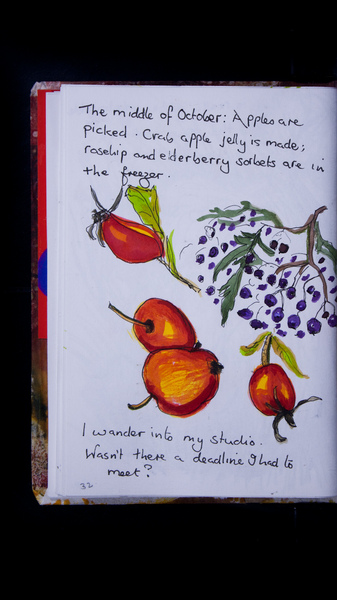 The middle of October: Apples are
picked. Crab apple jelly is made;
rosehip and elderberry sorbets are in
the freezer.
I wander into my studio.
Wasn't there a deadline I had to
meet?
32